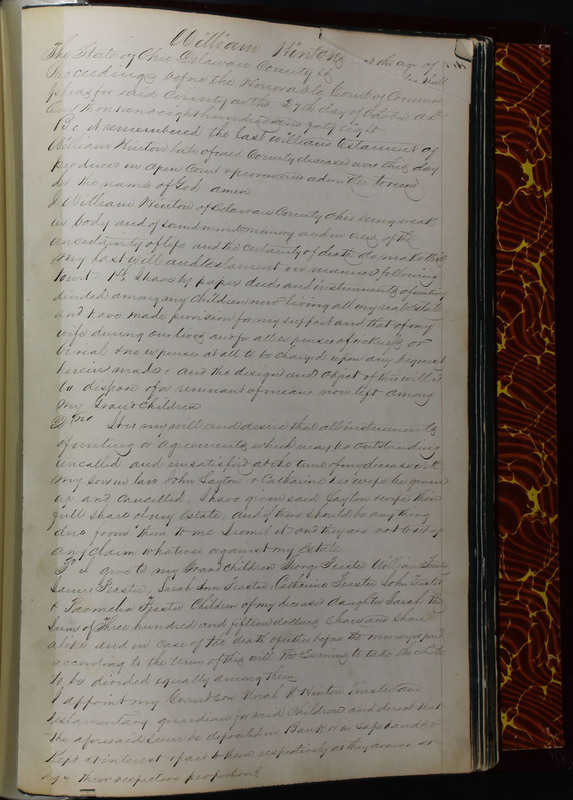 William Hinton
The State of Ohio Delaware County ss
Proceedings before the Honorable Court of Common
pleas for said County on the 27th day of October AD
one thousand eight hundred and forty eight
Be it remembered the last will and testament of
William Hinton late of said County deceased was this day
produced in open Court & proven was admitted to
In the name of God amen
I William Hinton of Delaware County Ohio being weak
in body and of sound mind memory and in view of the
uncertainty of life and the certainty of death do make this
my last will and testament in manner following
towit 1st I have by proper deeds and instruments of writing
divided among my children now living all my real Estate
and have made provision for my support and that of my
wife during our lives and for all expenses of sickness or
burial & no expenses at all to be charged upon any bequest
herein made, and the design and object of this will is
to dispose of a remnant of means now left among
my Grand Children
2nd It is my will and desire that all instruments
of writing or agreements which may be outstanding
uncalled and unsatisfied at the time of my decease with
my son in law John Layton & Catharine his wife be given
up and cancelled, I have given said Layton & wife their
full share of my Estate, and if there should be any thing
due from them to me I remit it and they are not to set up
any claim whatever against my Estate
3d I give to my Grand Children George Feaster William Feaster
Feaster, Sarah Ann Feaster, Catharine Feaster John Feaster
& Parmelia Feaster Children of my deceased daughter Sarah the
Sum of Three hundred and fifteen dollars share and share
alike and in case of the death of either before the money is paid
according to the terms of this will the surviving to take the whole
to be divided equally among them
I appoint my Grandson Noah H Hinton Trustee and
testamentary guardian for said Children and direct that
the aforesaid Sum be deposited in Bank or in safe hands &
Kept at interest & paid to them respectively as they arrive at
age their respective proportions